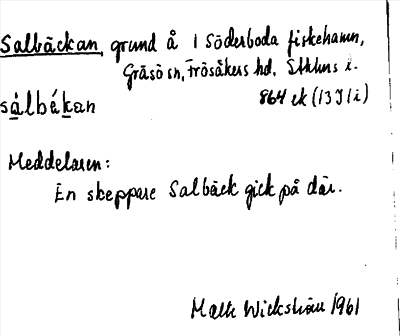 Salbäckan, grund å i Söderboda fiskehamn,
Gräsö sn, Frösåkers hd. Sthlms l.
sálbákan
864 ek (13 I 1 i)
Meddelaren:
En skeppare Salbäck gick på där.
Wickström 1961